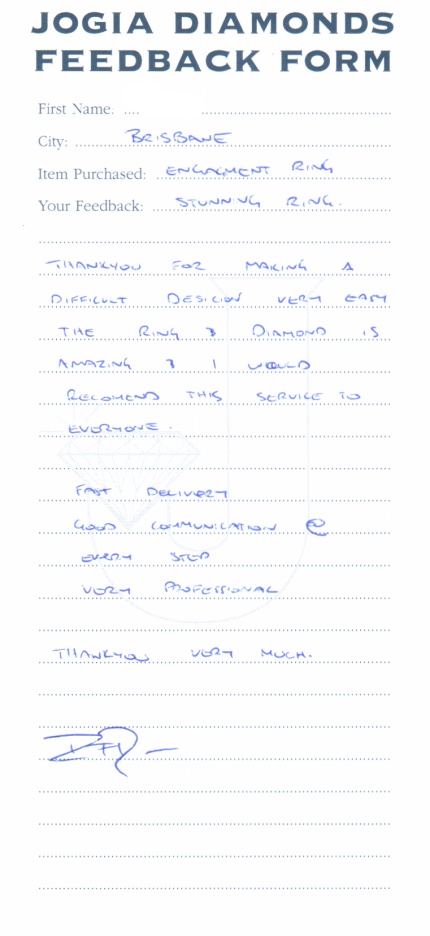 JOGIA DIAMONDS
FEEDBACK FORM
First Name:
City: BRISBANE
Item Purchased: ENGAGMENT RING
Your Feedback: STUNNING RING.
THANKYOU FOR MAKING A
DIFFICULT DESICION VERY EASY
THE RING & DIAMOND IS
AMAZING & I WOULD
RECOMEND THIS SERVICE TO
EVERYONE.
FAST DELIVERY
GOOD COMMUNICATION @
EVERY STEP
VERY PROFESSIONAL
THANKYOU VERY MUCH.